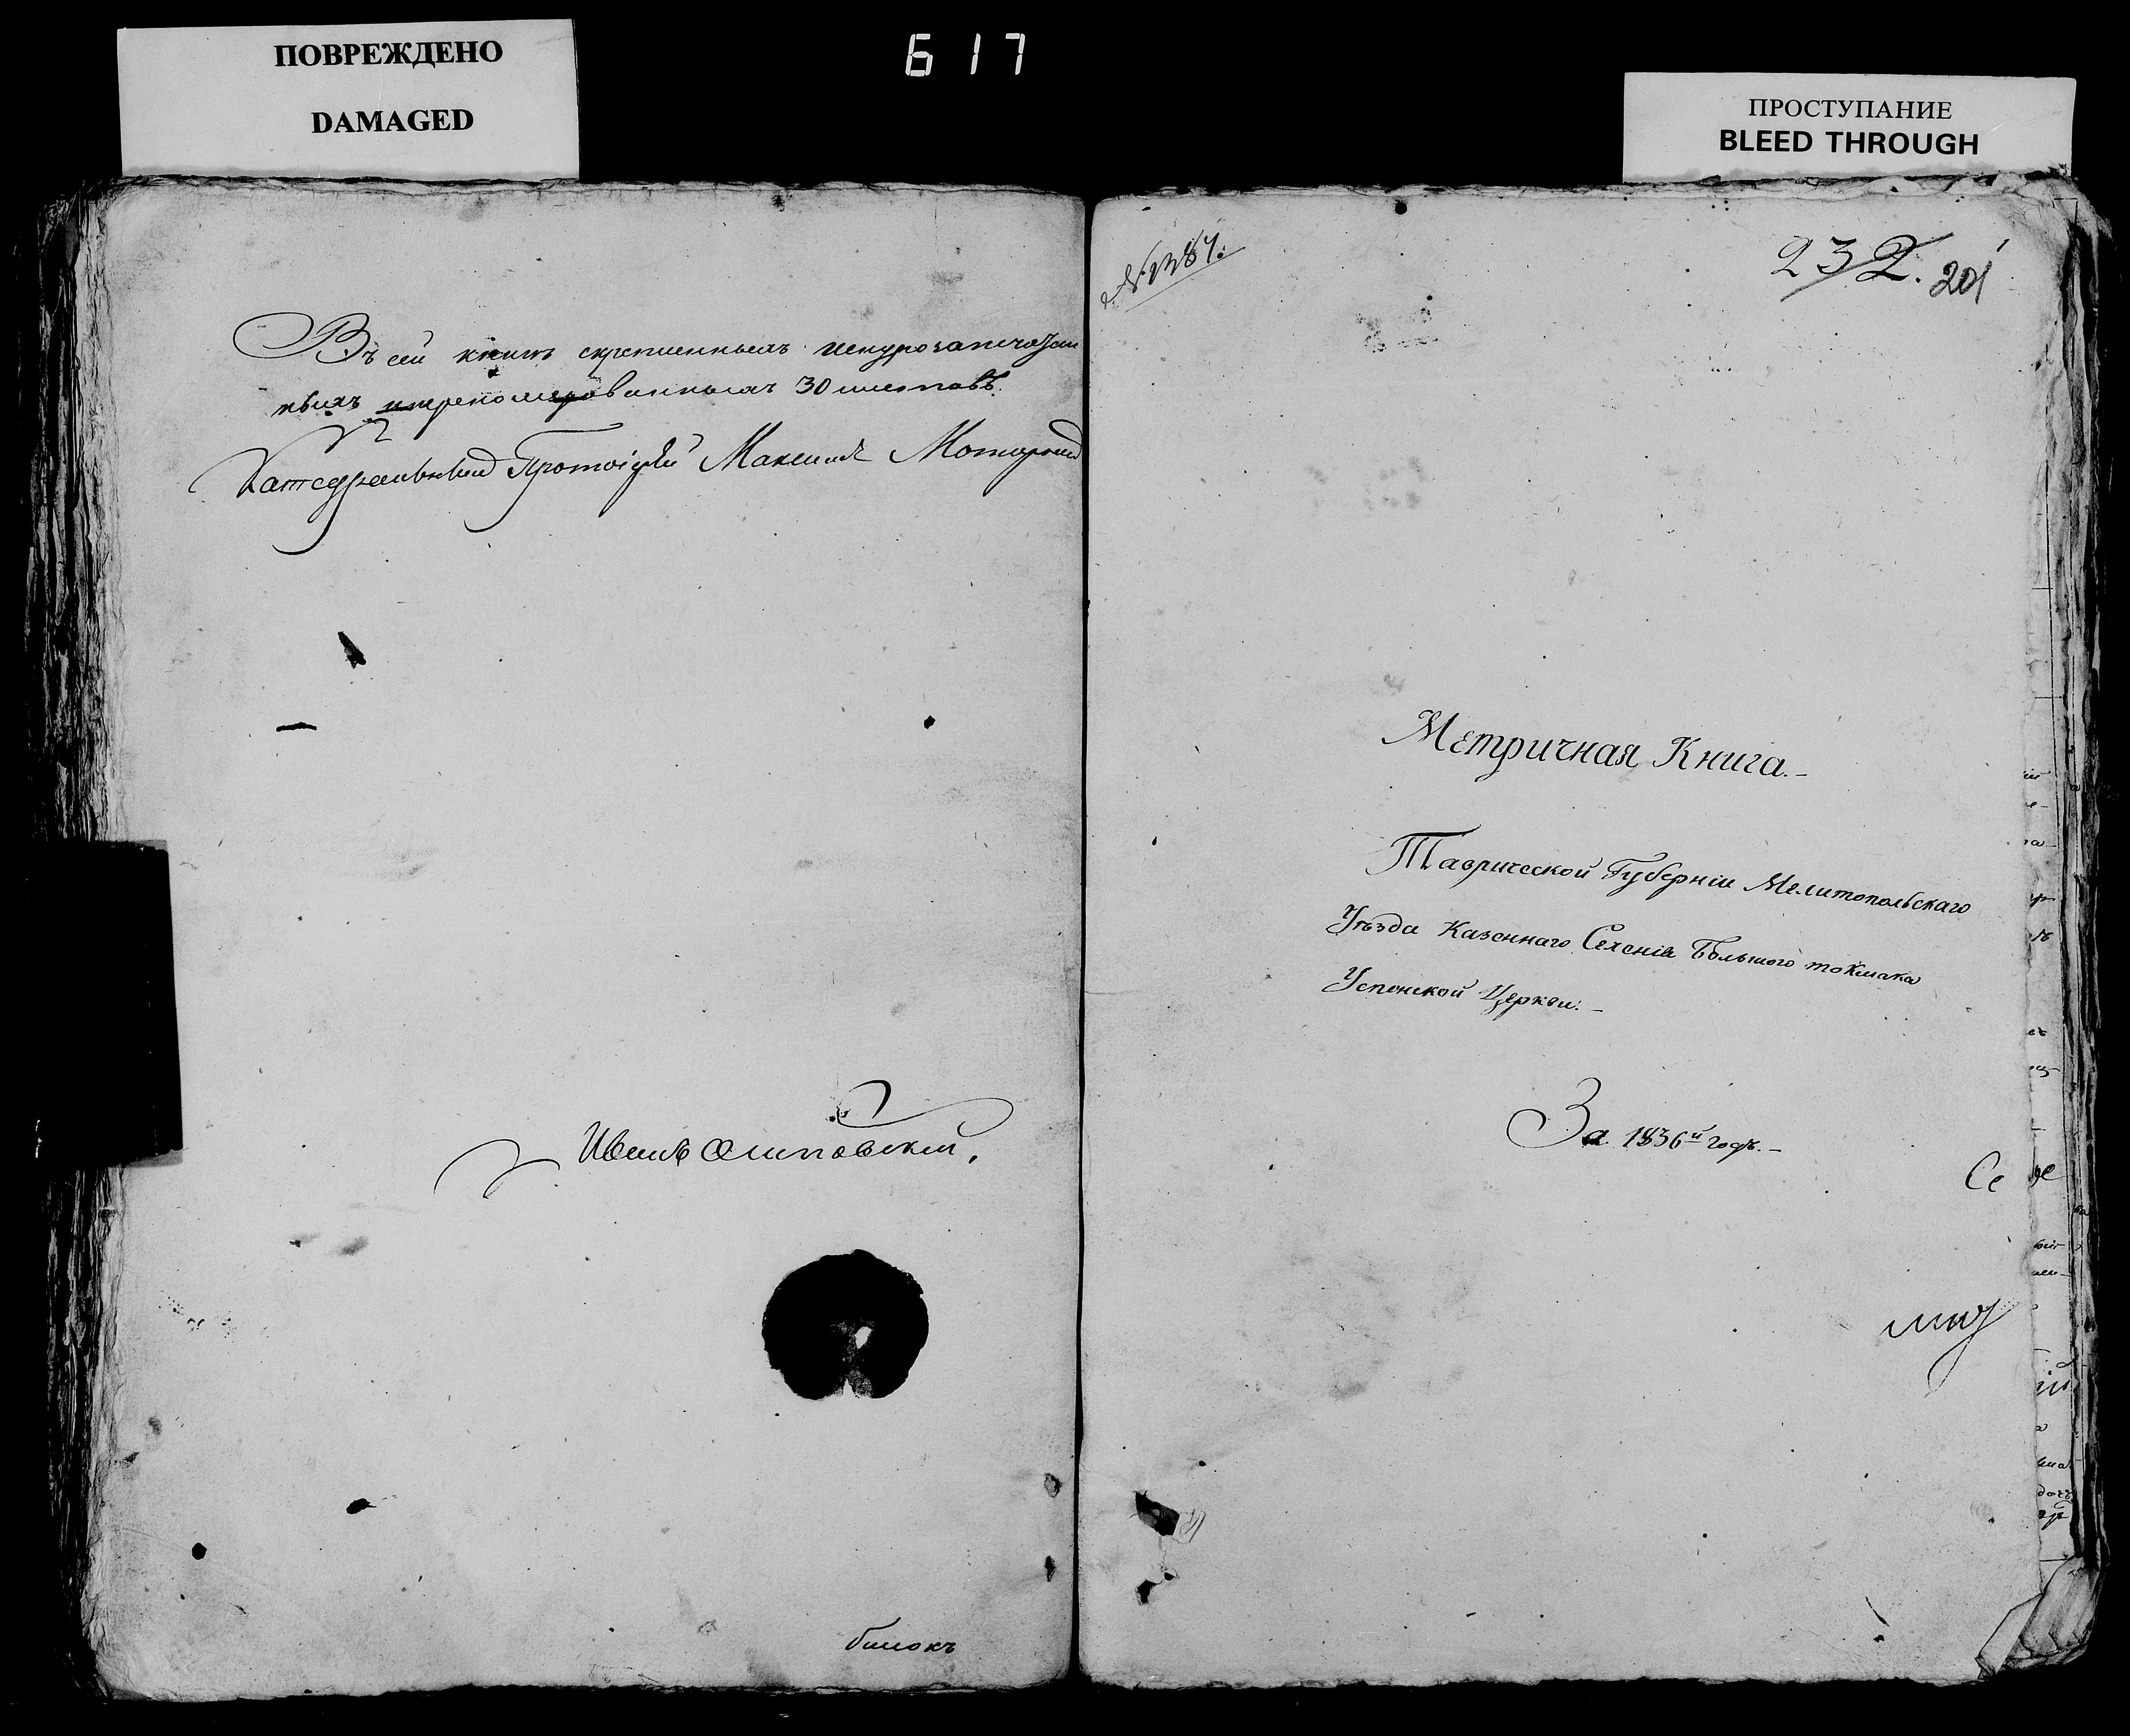 ПОВРЕЖДЕНО
DAMAGED
617
ПРОСТУПАНИЕ
BLEED THROUGH
Въ сей книге скрепленныхъ шнурозапечатан
ныхъ 30 листовъ.
Катедральный Протоіерей Максимъ
Иванъ Осиповскій.
232. 201
Метричная Книга.-
Таврической Губерніи Мелитопольскаго
Уѣзда Казеннаго Селенія Большого токмака
Успенской Церкви.-
За 1836й годъ.-
Се